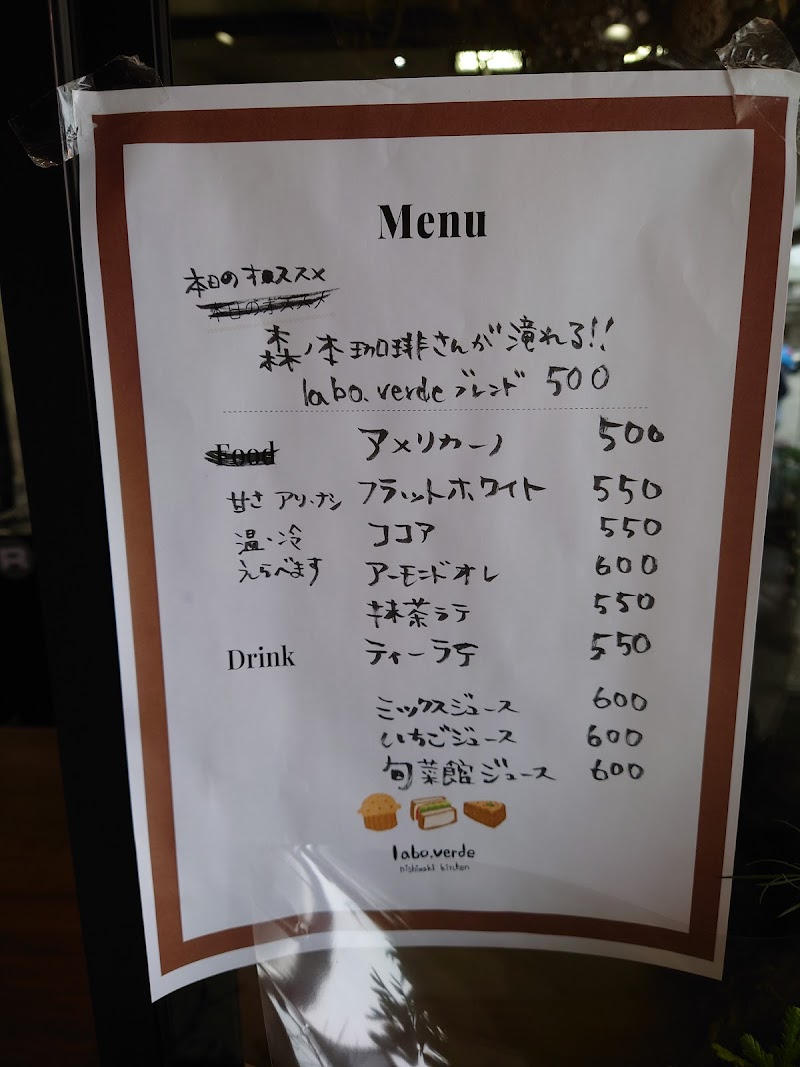 Menu
本日のオススメ
本日のオススメ
森ノ本珈琲さんが滝れる!!
labo.verdeブレンド 500
Food
アメリカーノ 500
甘さ アリ・ナシ フラットホワイト 550
温・冷 ココア 550
えらべます アーモンドオレ 600
抹茶ラテ 550
Drink ティーラテ 550
ミックスジュース 600
いちごジュース 600
旬菜館ジュース 600
labo.verde
nishiwaki kitchen